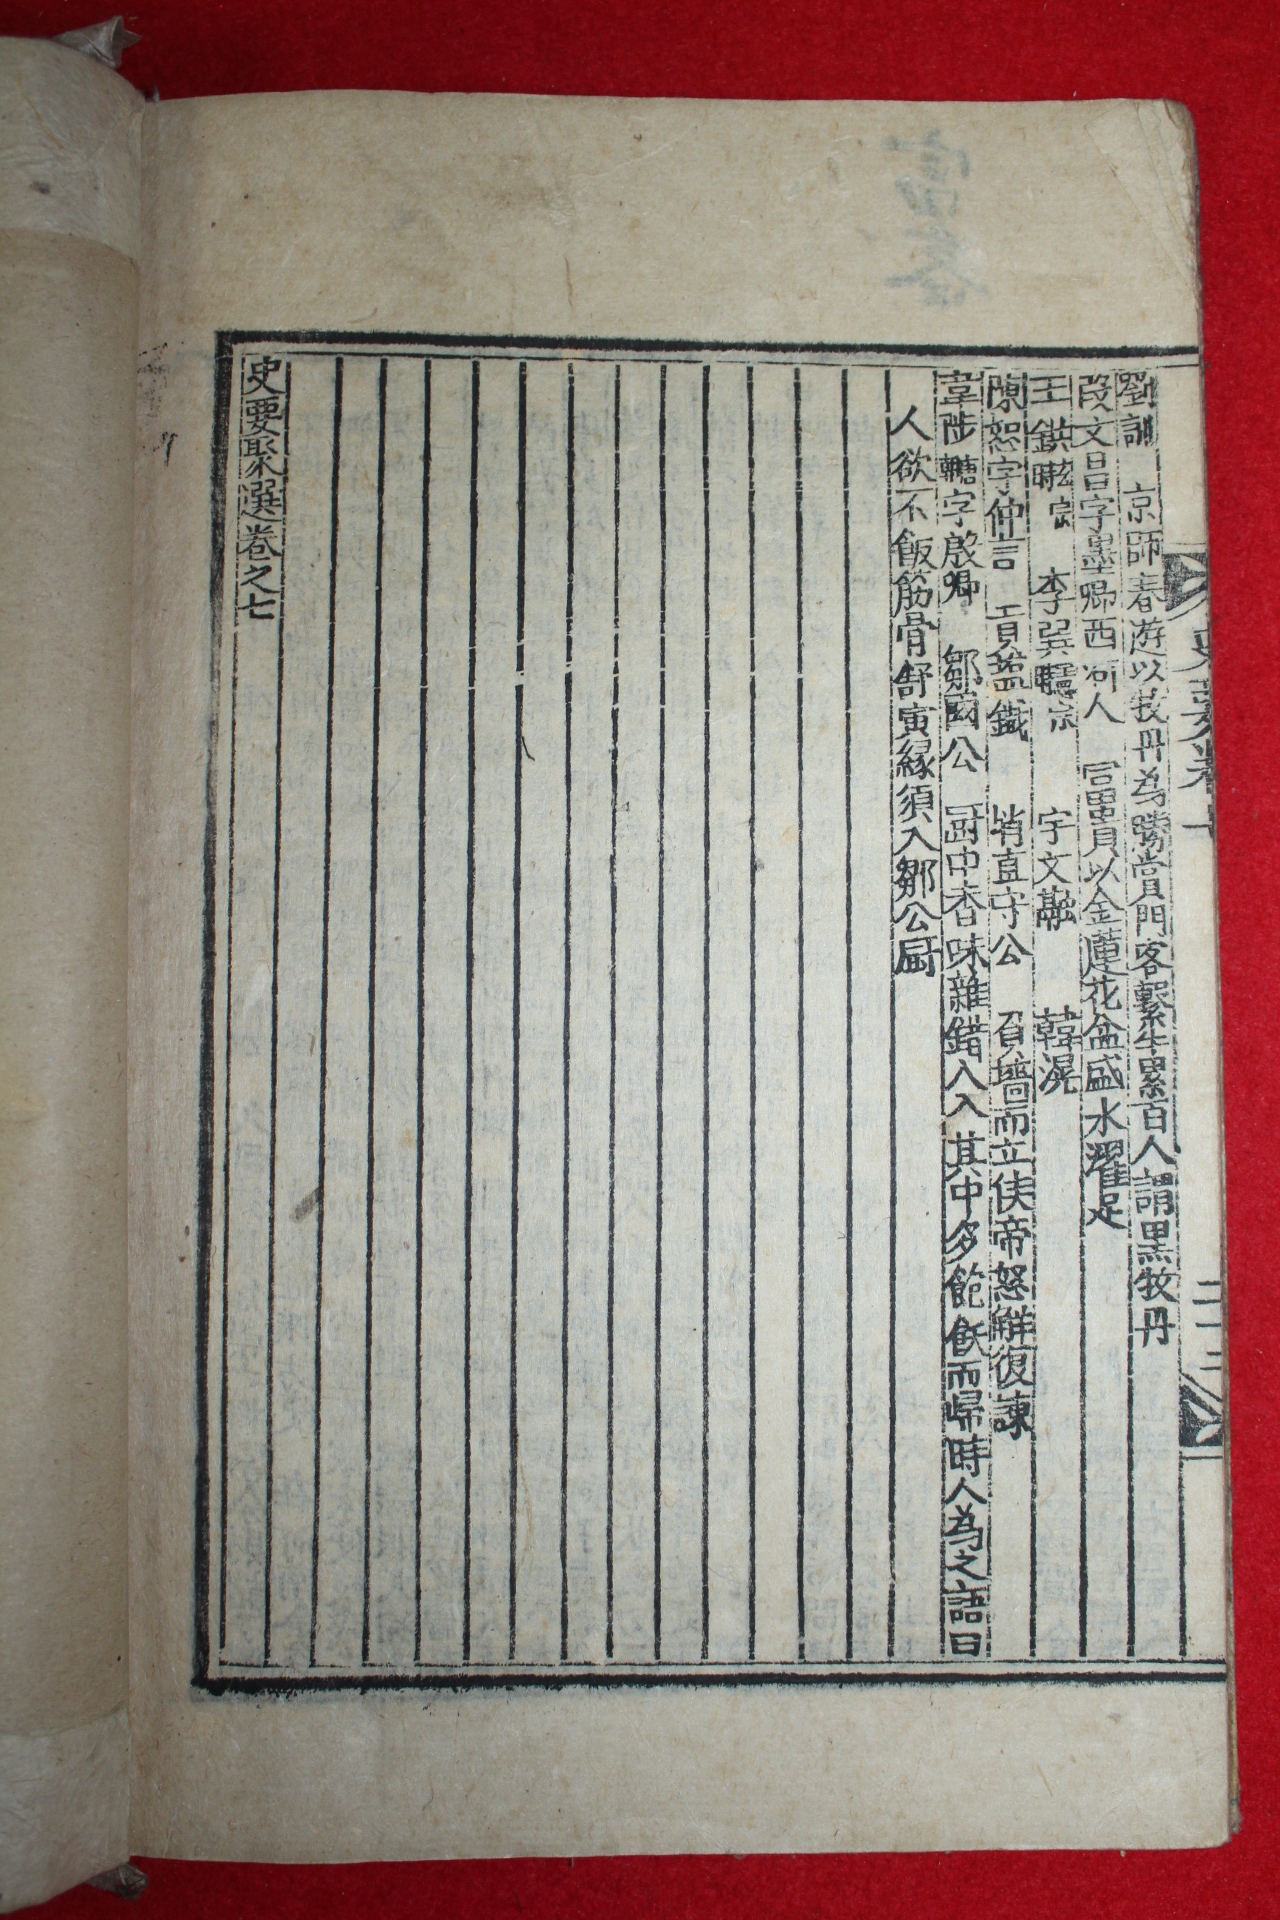 劉訓 京師春遊以牧丹為勝賞門客繫牛累百人謂黑牧丹
段文昌字墨卿西河人 富貴以金蓮花盆盛水濯足
王鉷 李巽 宇文融 韓滉
陳恕字仲言 貢塩鐵 峭直守公 負墻而立俟帝怒觧復諫
韋陟字殷卿 鄒國公 厨中香味雜錯入入其中多飽飫而歸時人為之語曰
人欲不飯筋骨舒寅緣須入鄒公厨
史要聚選卷之七